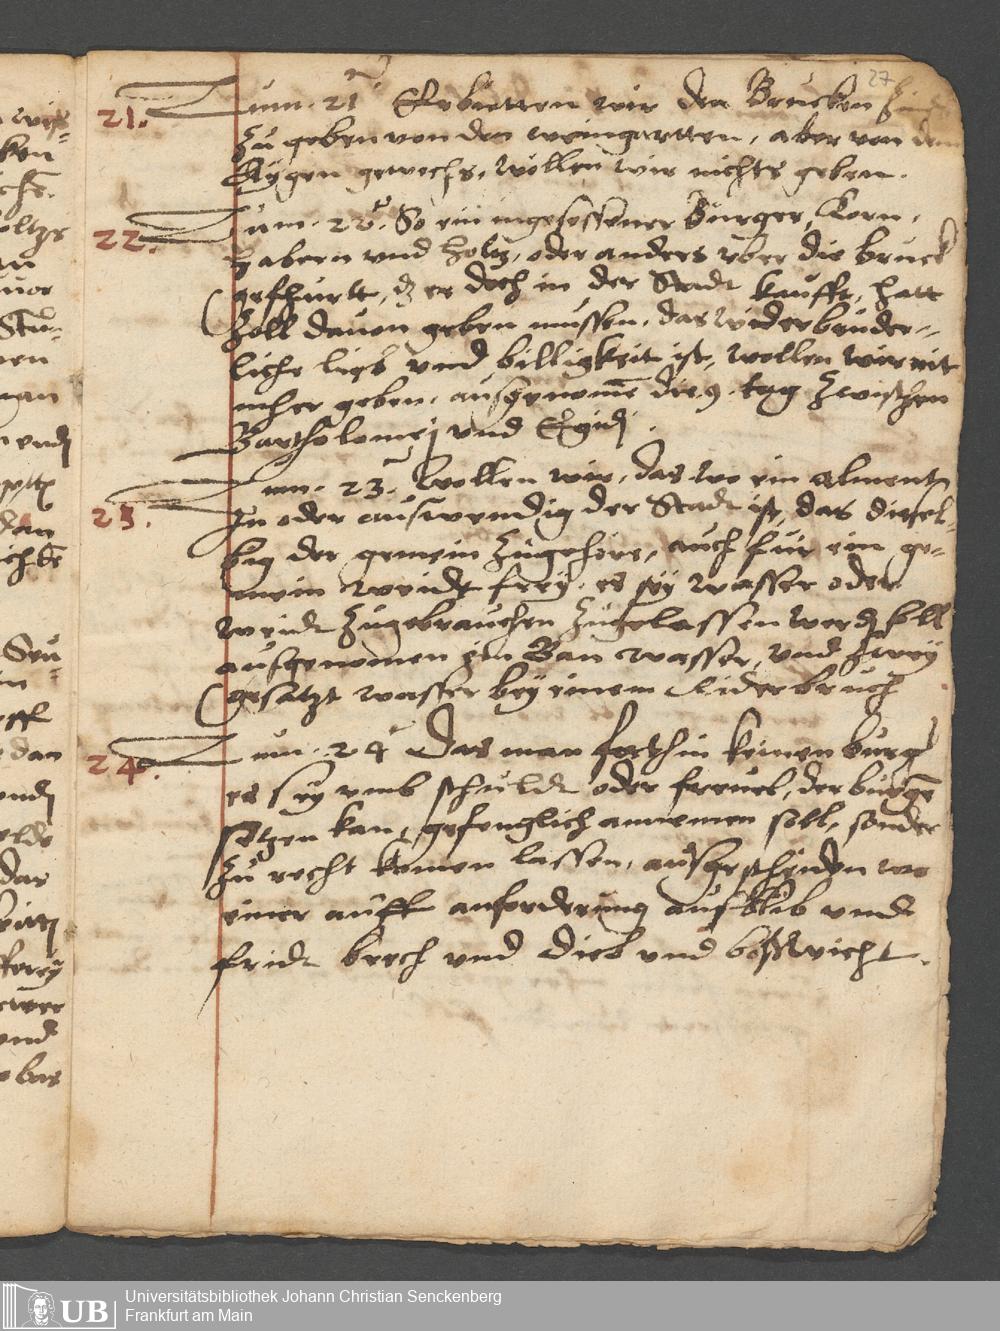 27
21. Zum .21. Erbietten wir den Brucken Zins
Zu geben von den weingartten, aber von dem
Eygen gewechs, wollen wir nichts geben.
22. Zum .22. So ein ingesessener Burger, Korn,
Habern vnd Holtz, oder anders vber die bruck
gefhurtt, dz er doch in der Stadt kaufft, hatt
Zoll dauon geben mussen, das wider bruder-
liche lieb vnd billigkeit ist, wollen wir nit
mher geben, ausgenomen die 9. tag Zwischen
Bartholomej vnd Egidj.
23. Zum .23. Wollen wir, das wo ein Alment
In oder auswendig der Stadt ist, das diesel-
big der gemein Zugehore, auch fur ein ge-
mein weidt frey, es sey wasser oder
weidt Zugebrauchen Zugelassen werden soll
ausgenomen ein Ban wasser, vnd Zwey
gesatzt wasser bey einem Riderbruch
24. Zum .24. Das man forthin keinen burger
es sey vmb schuldt oder freuel, der burgen
setzen kan, gefenglich annemen soll, sonder
Zu recht komen lassen, ausgescheiden wo
einer auff anforderung ausblib vnd
fridt brech vnd dieb vnd bosswicht.
UB Universitätsbibliothek Johann Christian Senckenberg
Frankfurt am Main